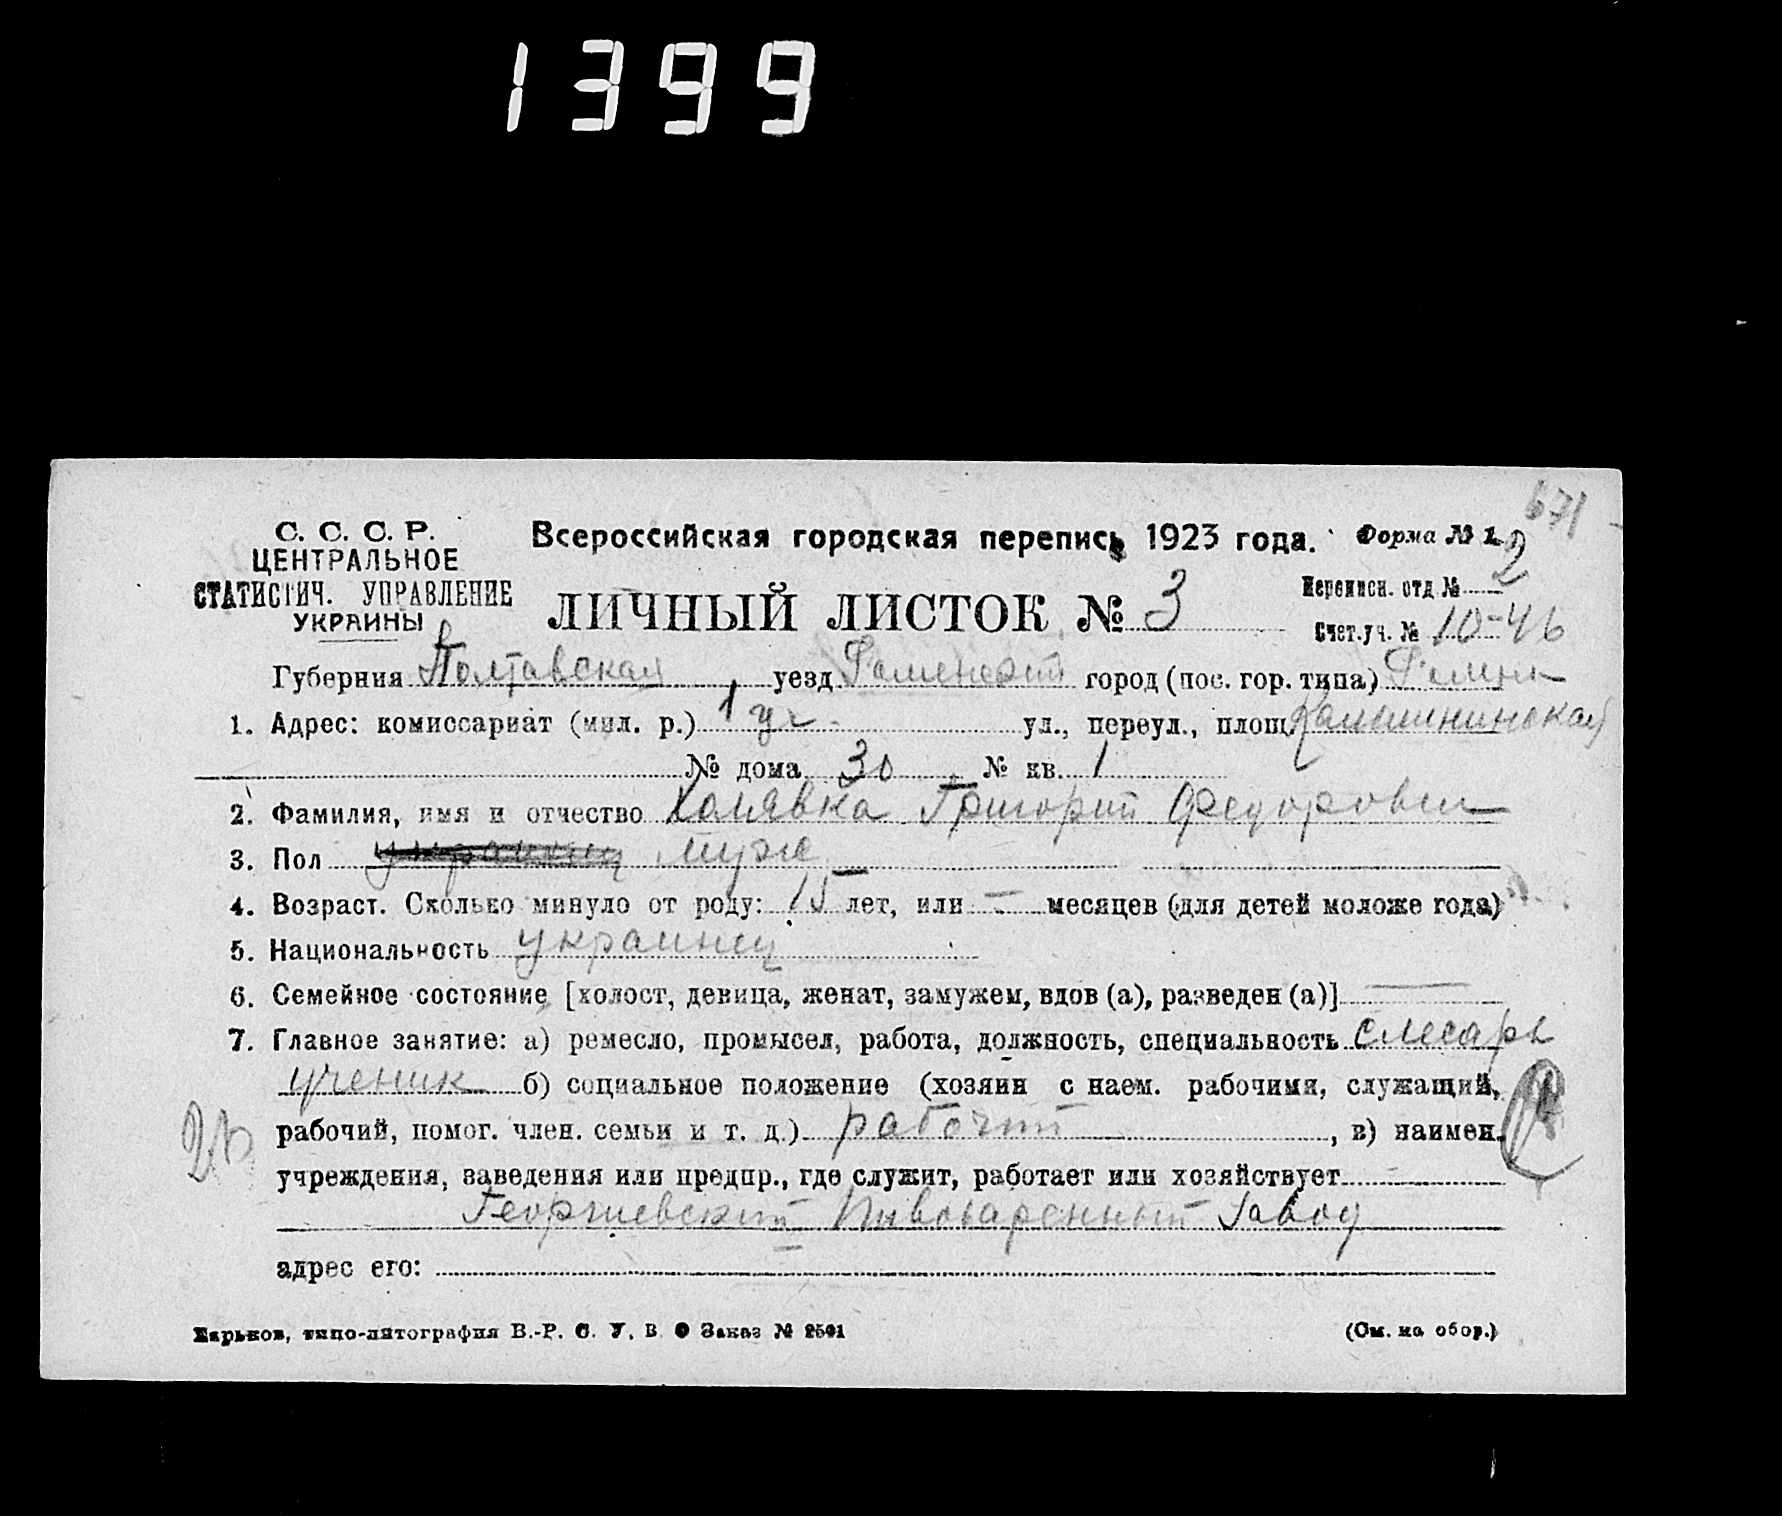 1399
671
С. С. С. Р.
ЦЕНТРАЛЬНОЕ
СТАТИСТИЧ. УПРАВЛЕНИЕ
УКРАИНЫ
Всероссийская городская перепись 1923 года. Форма № 1
ЛИЧНЫЙ ЛИСТОК № 3
Переписн. отд № 2
Счет.уч. № 10-46
Губерния Полтавская уезд город (пос. гор. типа)
1. Адрес: комиссариат (мил. р.) 1 уч. ул., переул., площ.
№ дома 30 № кв. 1
2. Фамилия, имя и отчество Халявка Григорий Федорович
3. Пол украинец муж
4. Возраст. Сколько минуло от роду: 15 лет, или — месяцев (для детей моложе года)
5. Национальность украинец
6. Семейное состояние [холост, девица, женат, замужем, вдов (а), разведен (а)] —
7. Главное занятие: а) ремесло, промысел, работа, должность, специальность слесарь
ученик б) социальное положение (хозяин с наем. рабочими, служащий,
рабочий, помог. член. семьи и т. д.) рабочий, в) наимен.
учреждения, заведения или предпр., где служит, работает или хозяйствует
Георгиевский Пивоваренный завод
адрес его:
Харьков, типо-литография В.-Р. С. У. В. Заказ № 2501
(См. на обор.)